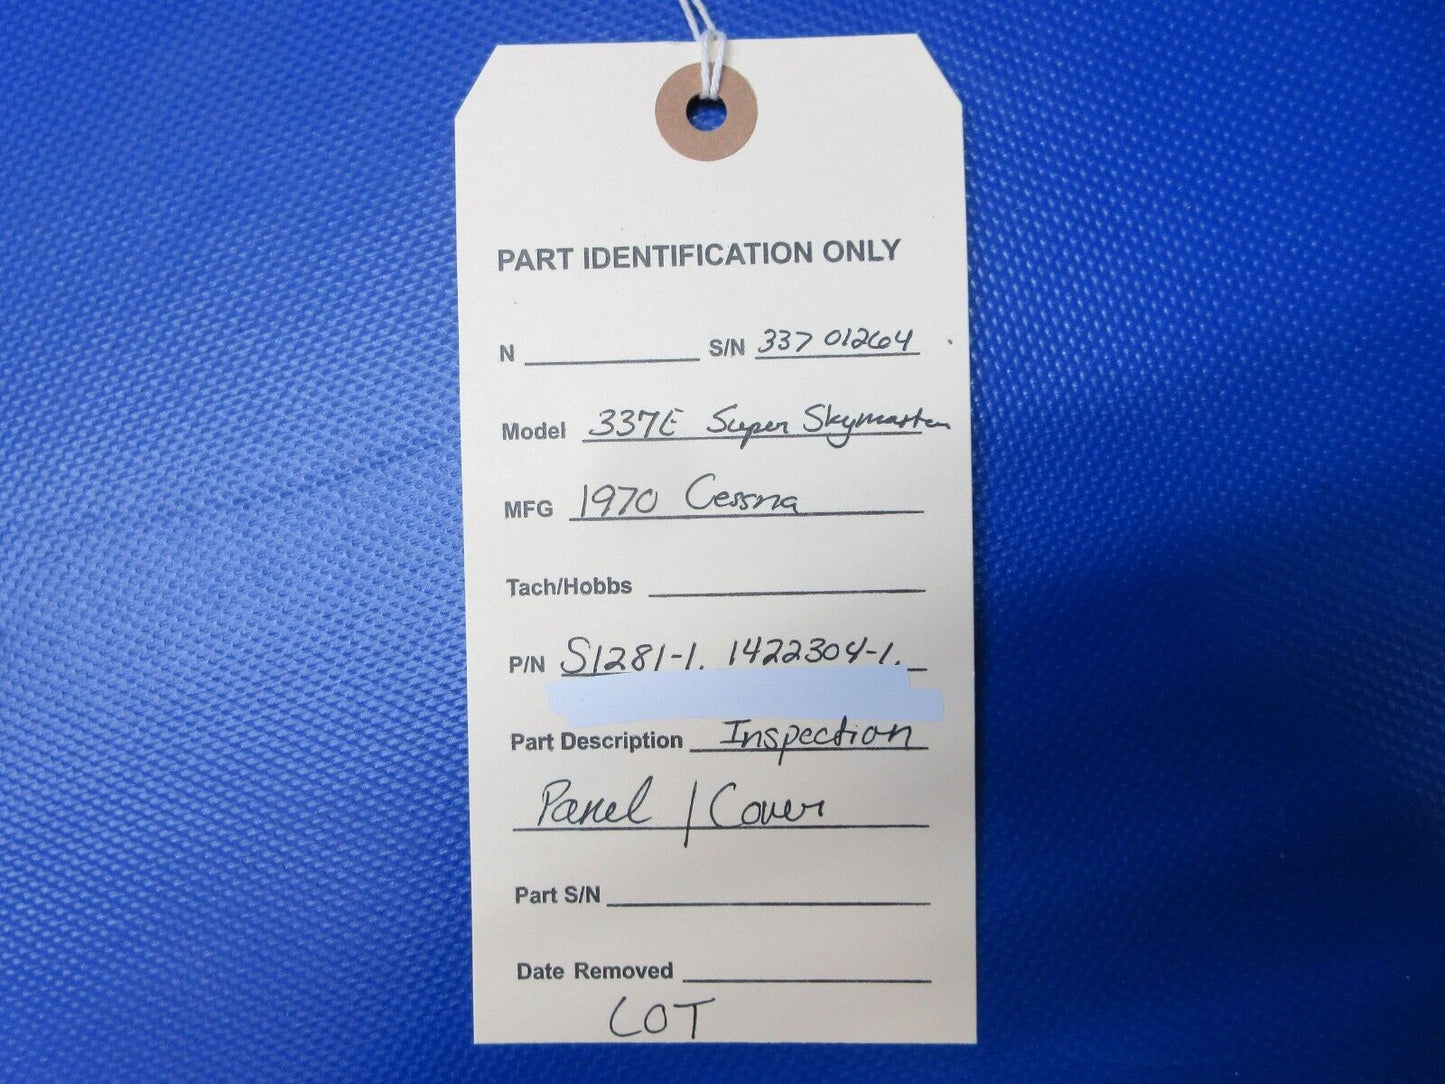 PART IDENTIFICATION ONLY
N S/N 337 01264
Model 337E Super Skymaster
MFG 1970 Cessna
Tach/Hobbs
P/N S1281-1. 1422304-1.
Part Description Inspection
Panel / Cover
Part S/N
Date Removed
LOT